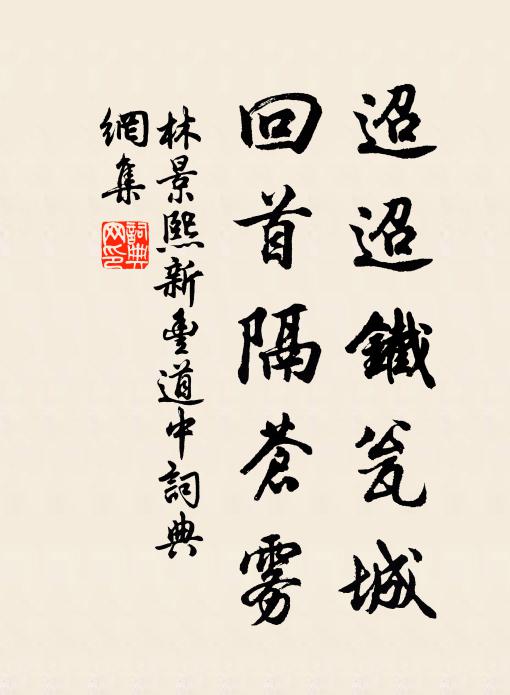 迢迢鐵瓮城
回首隔蒼雾
林景熙新豐道中詞典
網集
詞典
网印